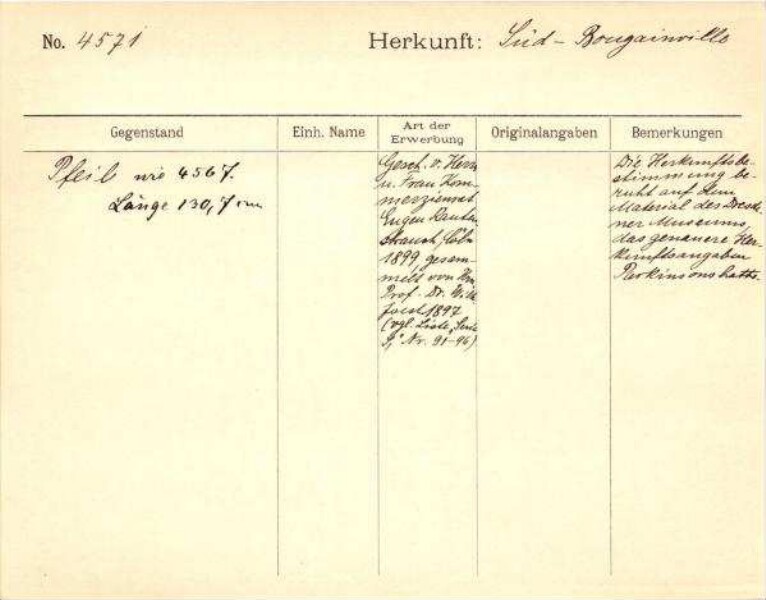 No. 4571
Herkunft: Süd-Bougainville
Gegenstand
Einh. Name
Art der
Erwerbung
Originalangaben
Bemerkungen
Pfeil wie 4567.
Länge 130,7 cm
Gesch. v. Herrn
u. Frau Kom-
merzienrat
Eugen Rauten-
strauch, Cöln
1899 gesam-
melt von Hn
Prof. Dr. Wilh
Joest 1897
(vgl. Liste „Serie
Nr. 91-96)
Die Herkunftsbe-
stimmung be-
ruht auf dem
Material des Dresde-
ner Museums,
das genauere Her-
kunftsangaben
Parkinsons hatte.